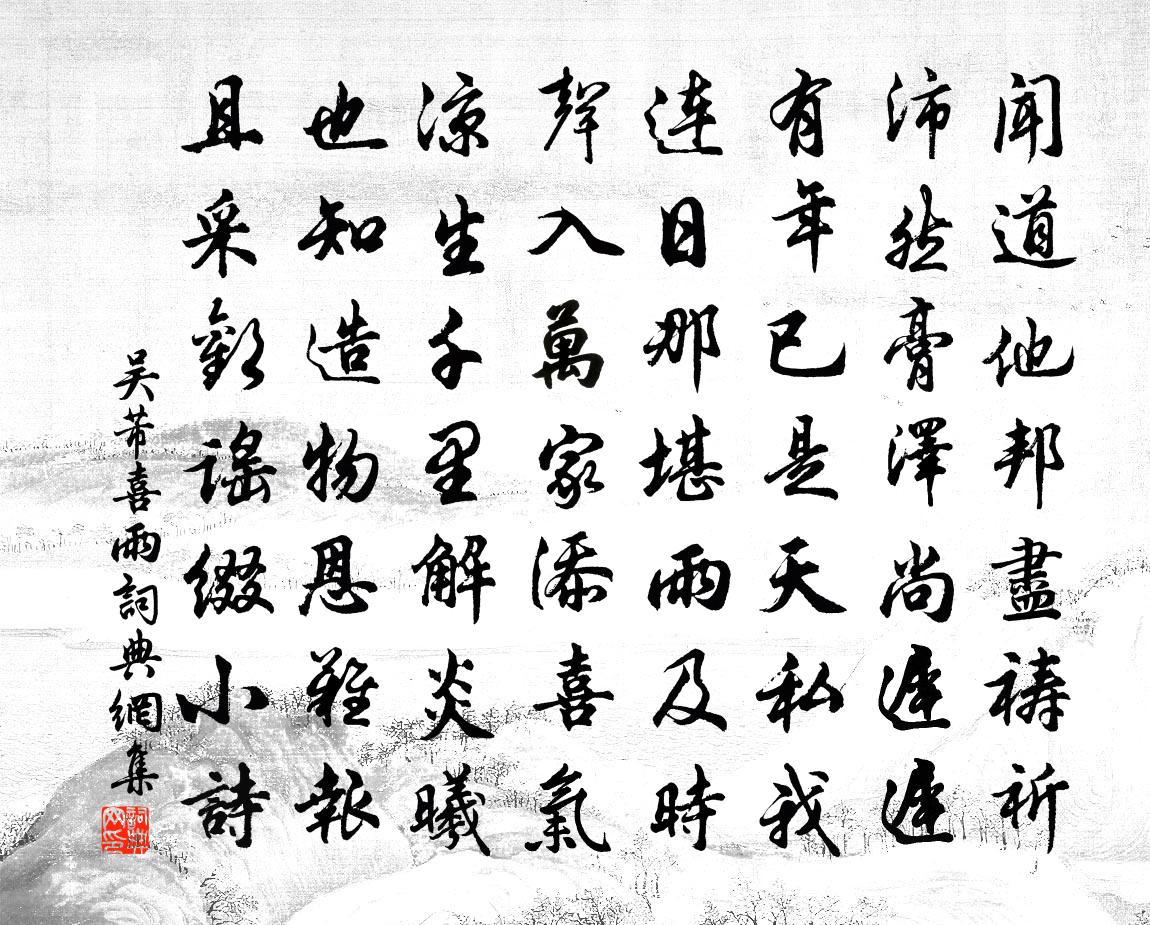 聞道他邦盡禱祈
沛然膏澤尚遲遲
有年已是天私我
連日那堪雨及時
聲入萬家添喜氣
涼生千里解炎曦
也知造物恩難報
且采歡謠綴小詩
吳芾喜雨詞典網集